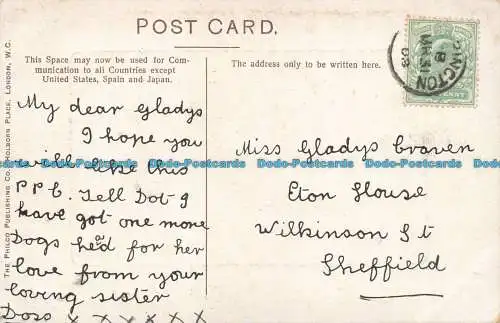 POST CARD.
This Space may now be used for Com-
munication to all Countries except
United States, Spain and Japan.
The address only to be written here.
THE PHILCO PUBLISHING CO., HOLBORN PLACE, LONDON, W.C.
My dear Gladys
I hope you
will like this
P.P.C. Tell Dot I
have got one more
Dogs head for her
love from your
loving sister
Doss x x x x x x
Miss Gladys Craven
Eton House
Wilkinson St
Sheffield
Dodo-Postcards Dodo-Postcards Dodo-Postcards Dodo-Postcards Dodo-Postcards